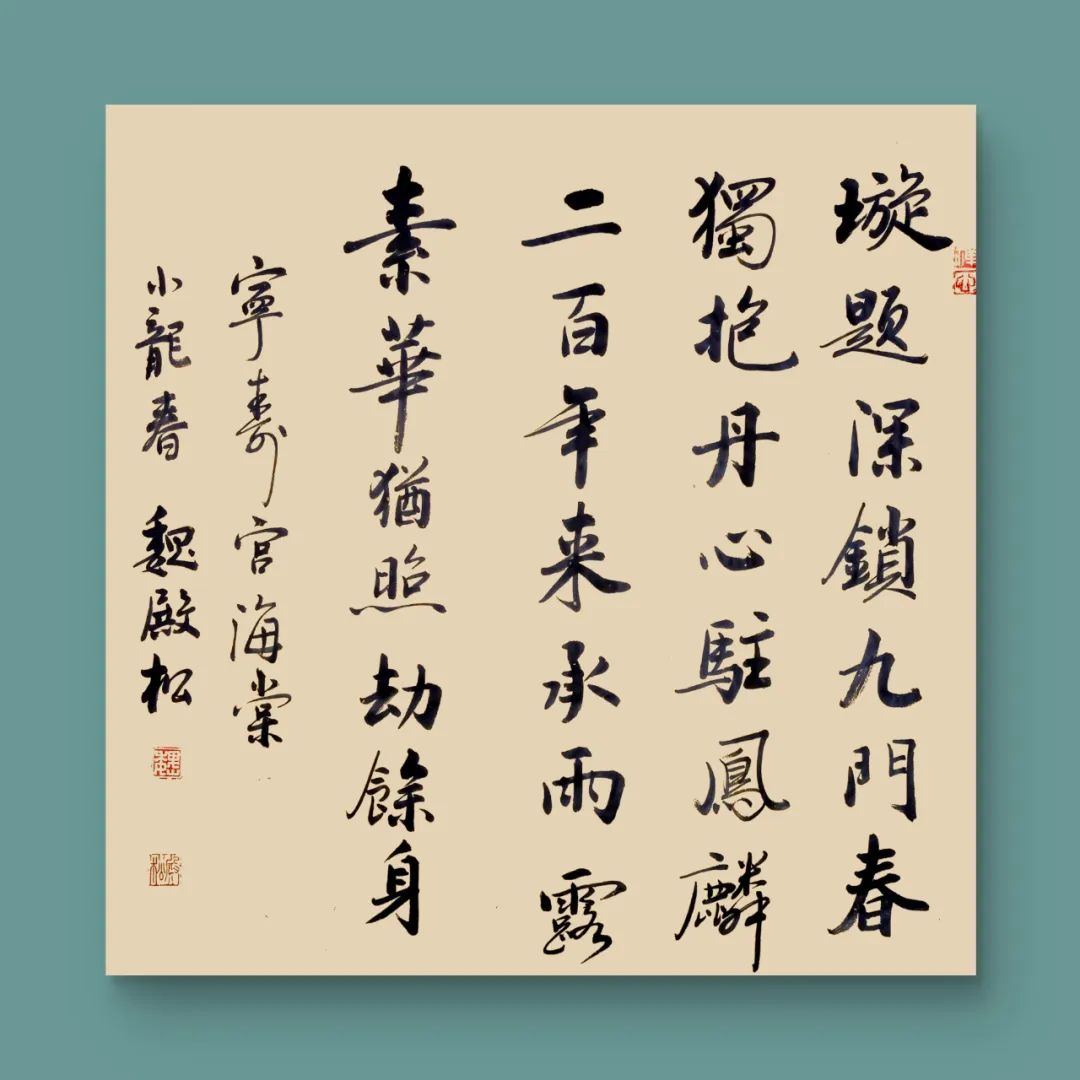 璇題深鎖九門春
獨抱丹心駐鳳麟
二百年来承雨露
素華猶照劫餘身
寧壽宮海棠
小龍春 魏殿松